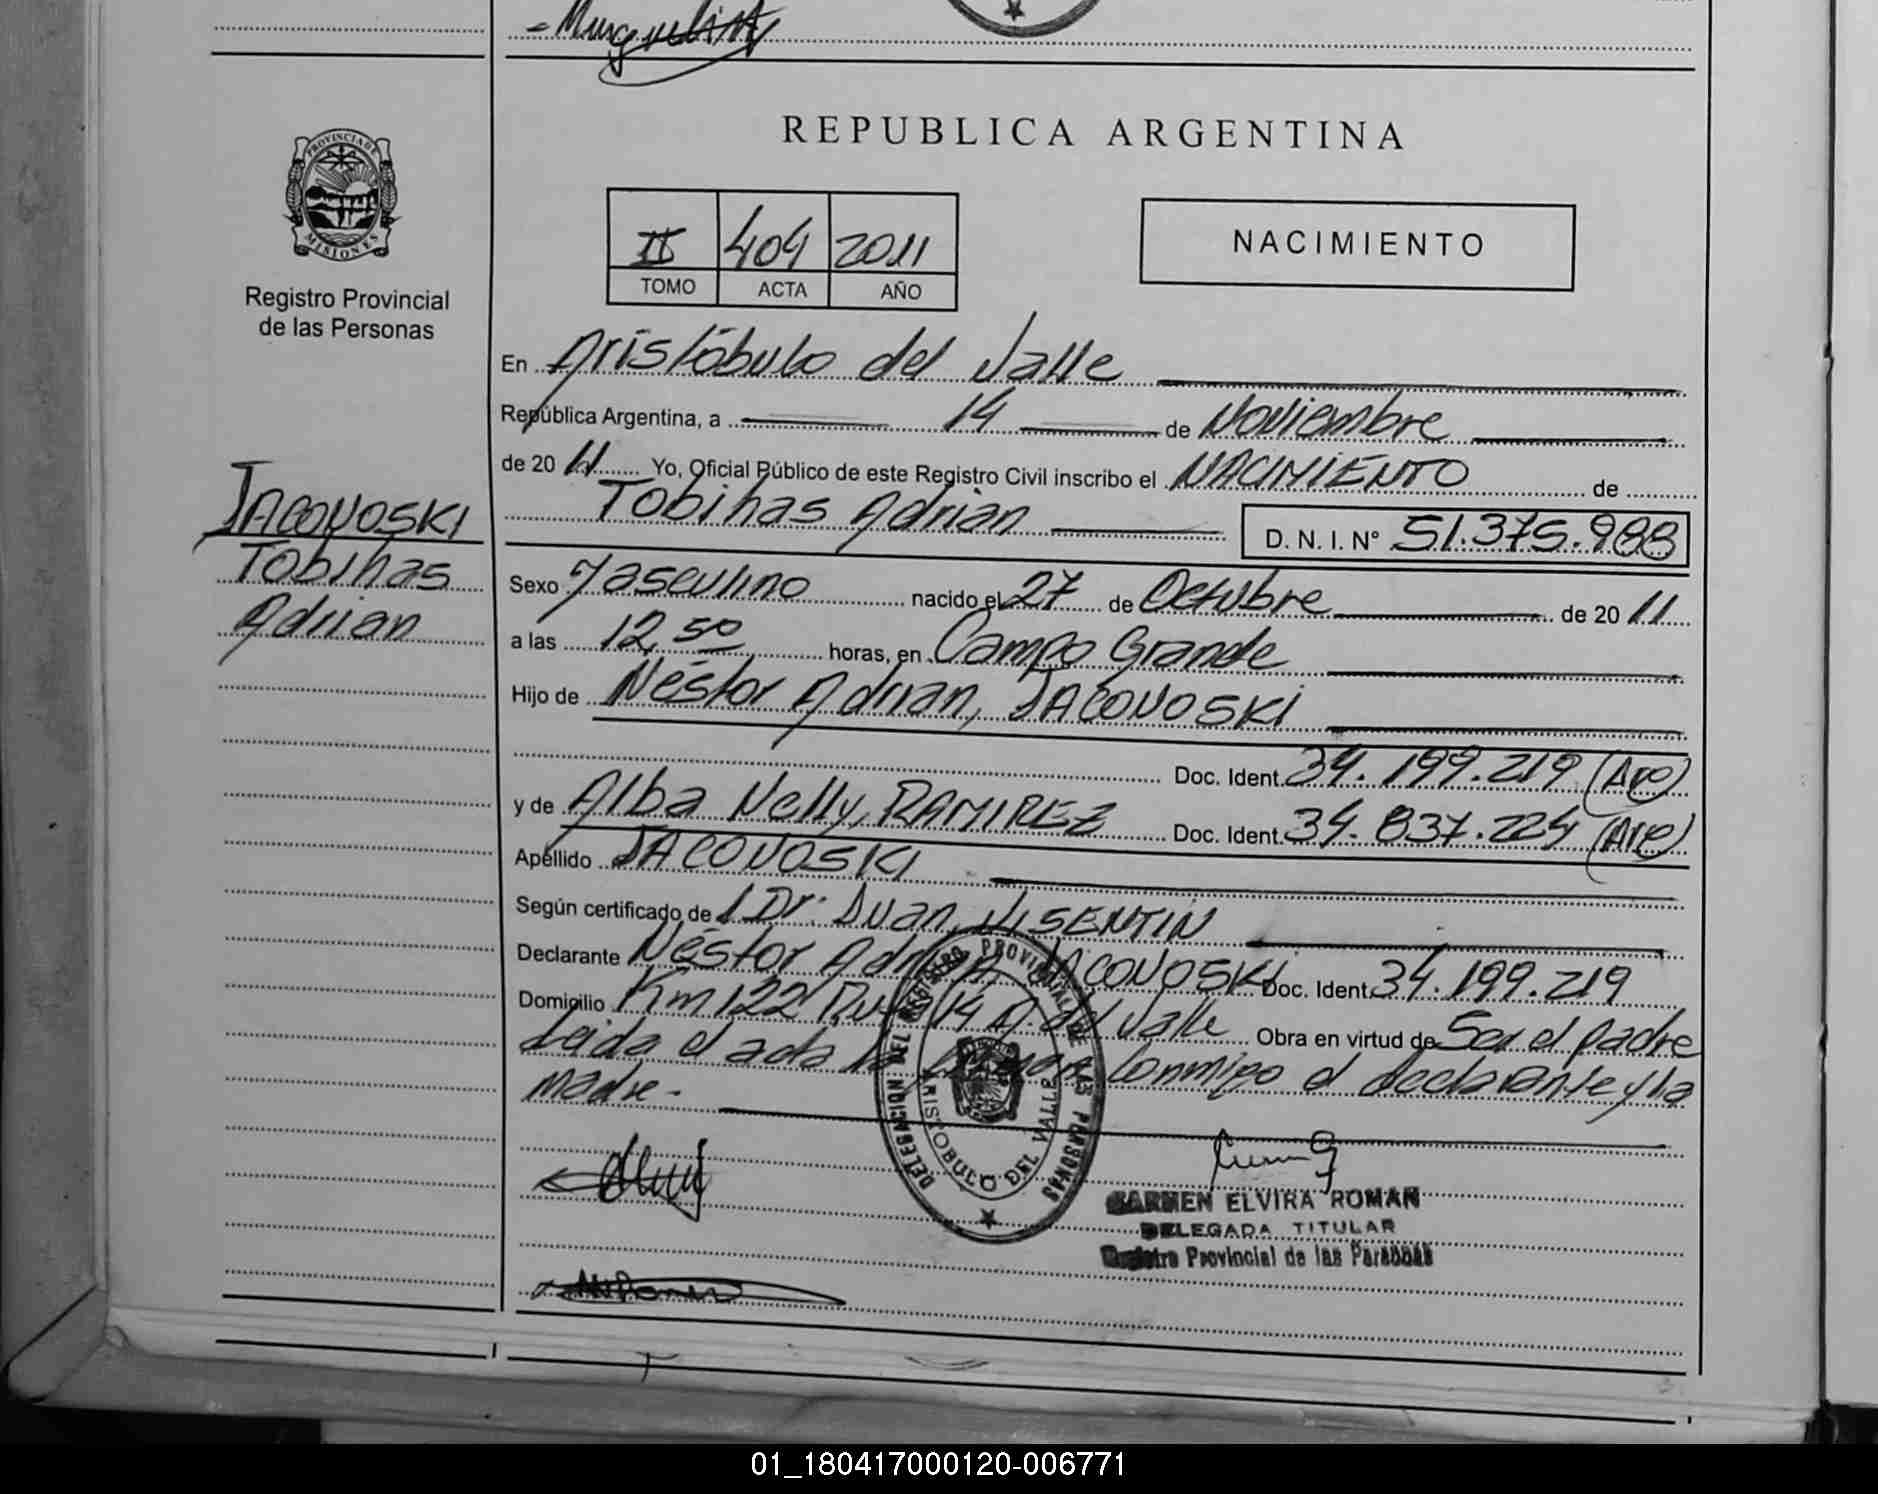 REPUBLICA ARGENTINA
PROVINCIA DE
MISIONES
Registro Provincial
de las Personas
II 404 2011
TOMO ACTA AÑO
NACIMIENTO
En Aristóbulo del Valle
República Argentina, a 14 de Noviembre
de 2011 Yo, Oficial Público de este Registro Civil inscribo el NACIMIENTO de
Tobihas Adrian D. N. I. N° 51.375.988
JACOVOSKI
Tobihas
Adrian
Sexo Masculino nacido el 27 de Octubre de 2011
a las 12,50 horas, en Campo Grande
Hijo de Néstor Adrian, JACOVOSKI
Doc. Ident. 34.199.219 (Arg)
y de Alba Nelly, RAMIREZ Doc. Ident. 34.837.224 (Arg)
Apellido JACOVOSKI
Según certificado de 1 Dr: Juan, VISENTIN
Declarante Néstor Adrian JACOVOSKI Doc. Ident. 34.199.219
Domicilio Km 122 Ruta 14 A. del Valle Obra en virtud de Ser el padre
Leida el acta la firman conmigo el declarante y la
madre.-
DELEGACION DEL REGISTRO PROVINCIAL DE LAS PERSONAS
ARISTOBULO DEL VALLE
CARMEN ELVIRA ROMAN
DELEGADA TITULAR
Registro Provincial de las Personas
01_180417000120-006771